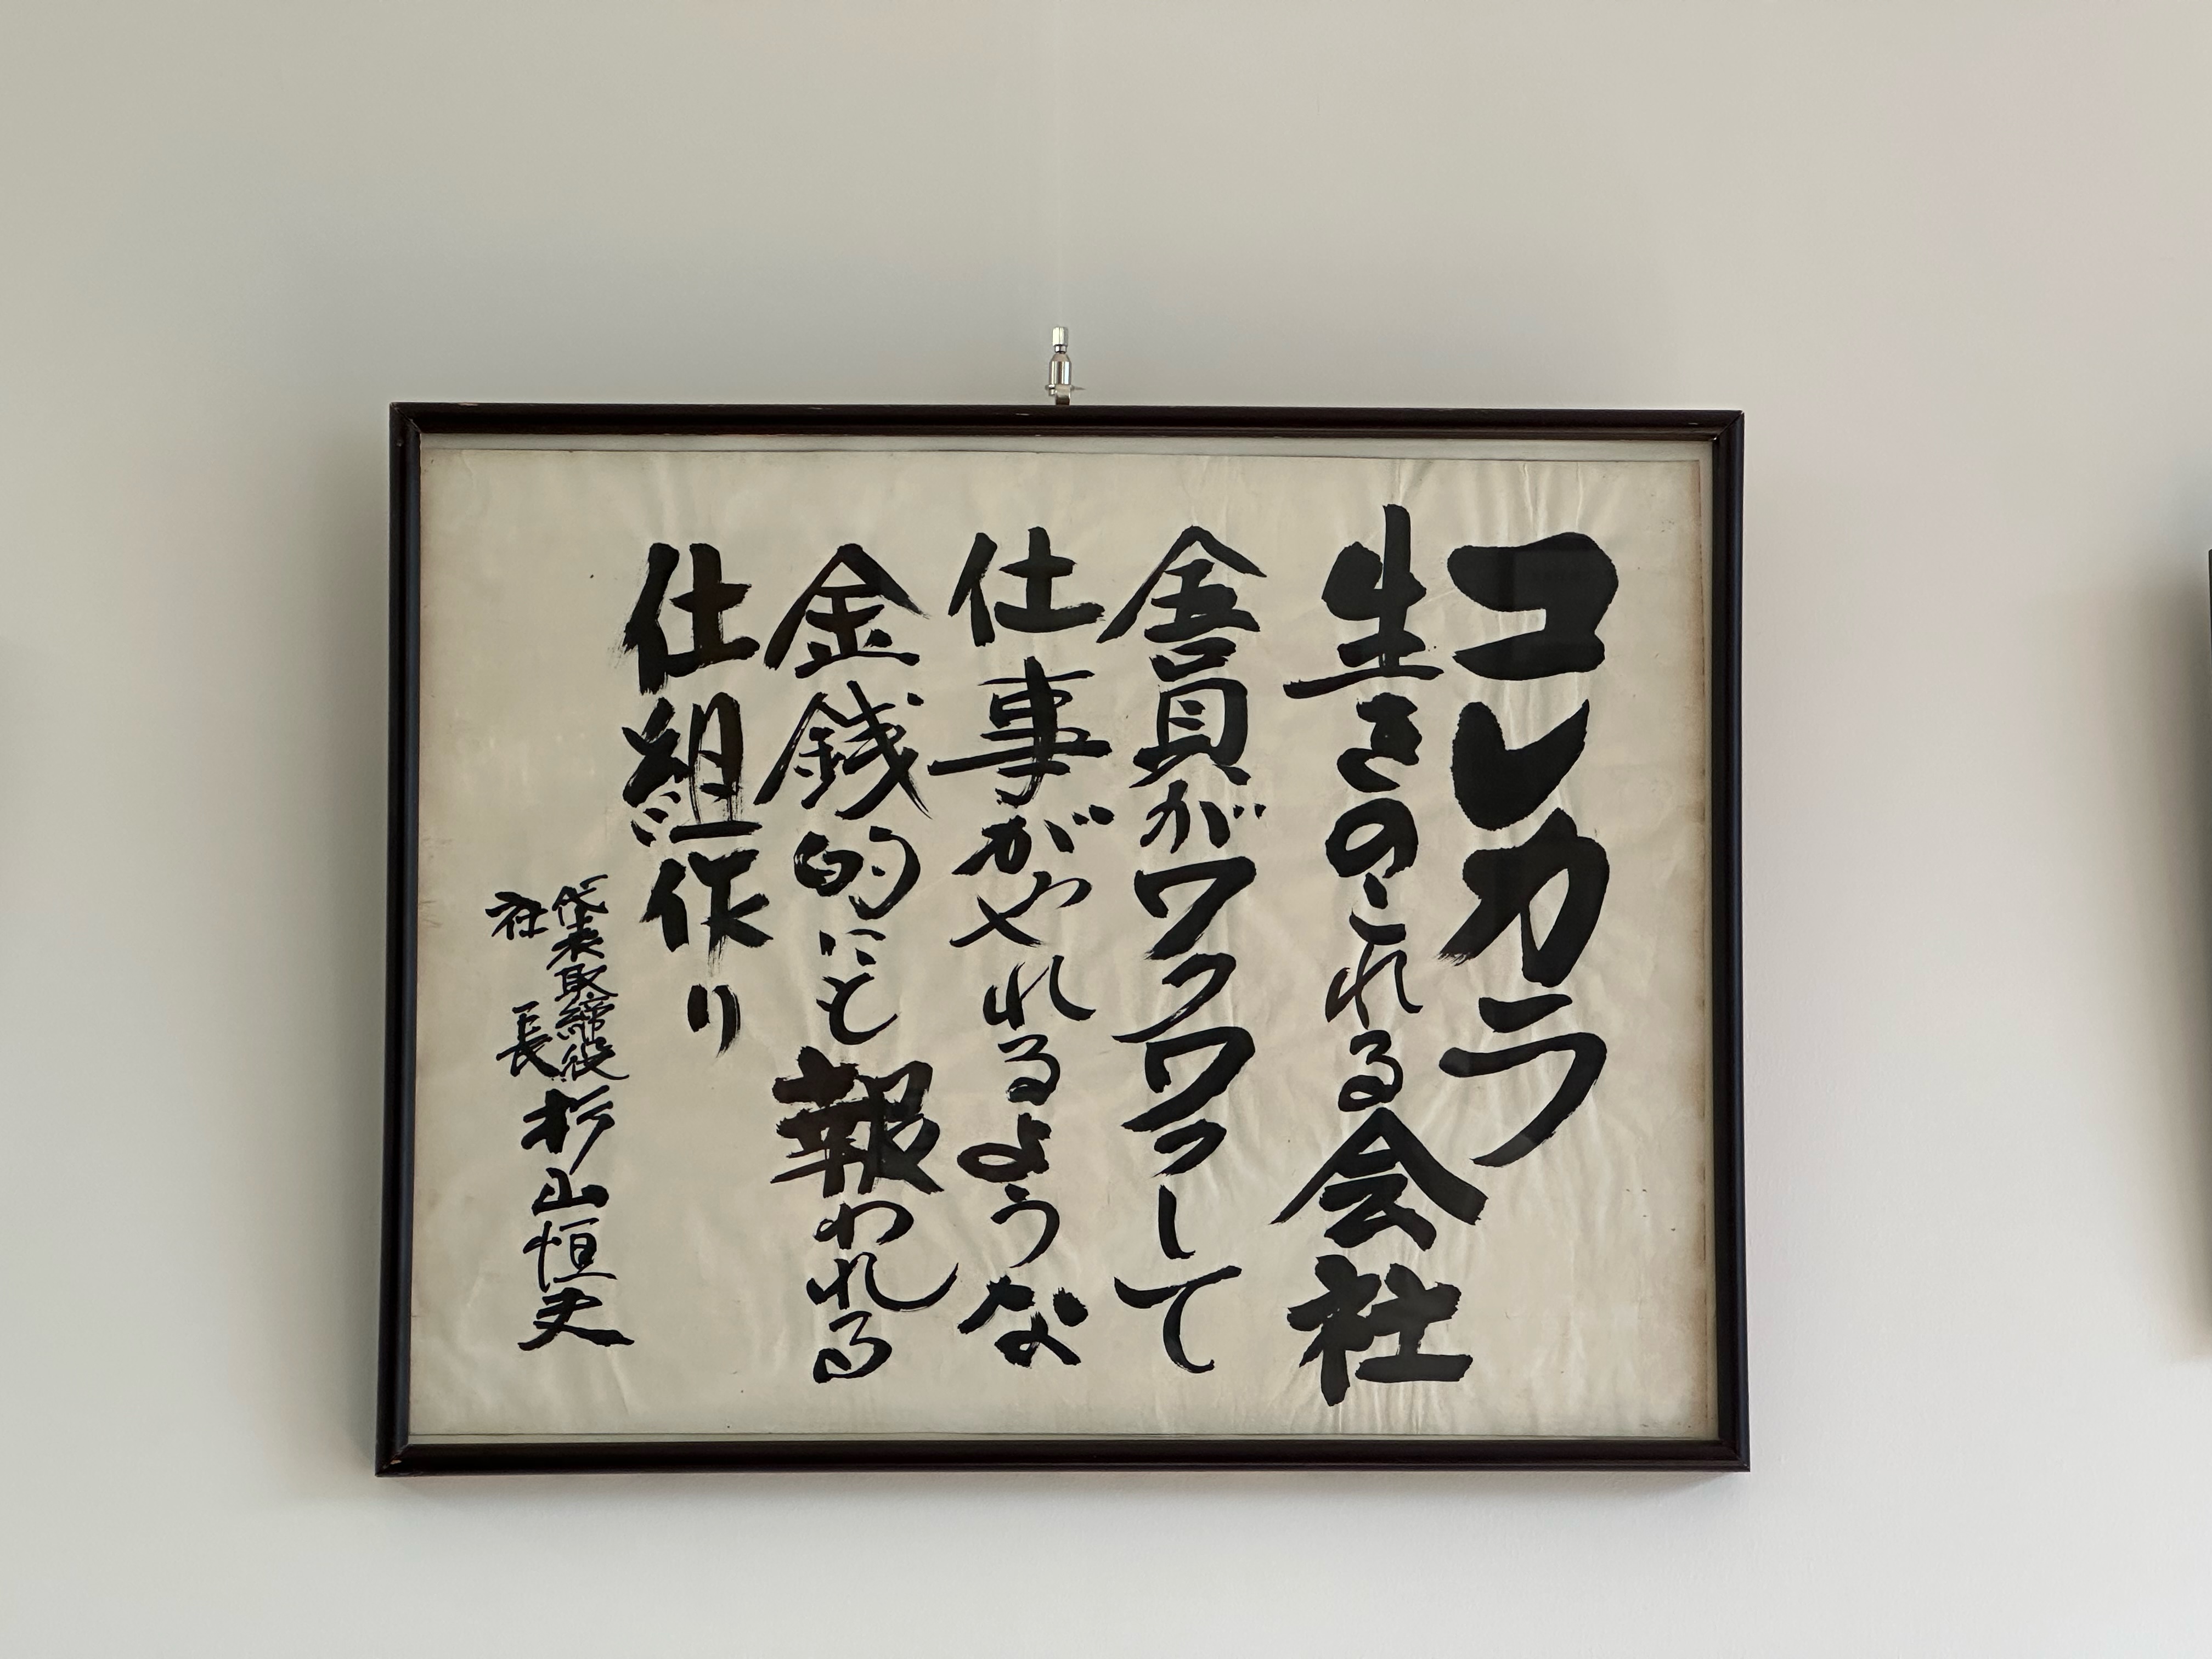 コレカラ
生きのこれる会社
全員がワクワクして
仕事がやれるような
金銭的にも報われる
仕組作り
代表取締役
社長
杉山恒夫